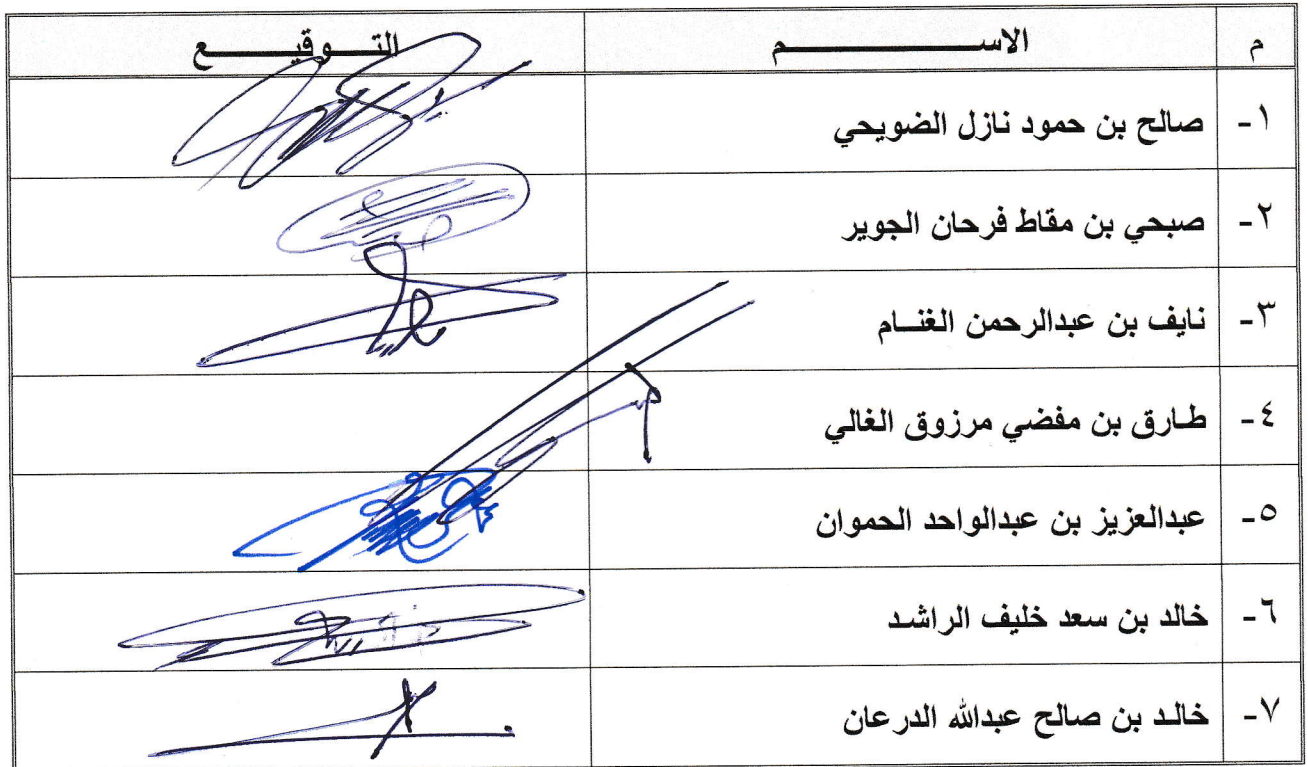 م الاســـــــــم التـــوقيـــــع
١- صالح بن حمود نازل الضويحي
٢- صبحي بن مقاط فرحان الجوير
٣- نايف بن عبدالرحمن الغنــام
٤- طـارق بن مفضي مرزوق الغالي
٥- عبدالعزيز بن عبدالواحد الحموان
٦- خالد بن سعد خليف الراشـد
٧- خالـد بن صالح عبدالله الدرعان